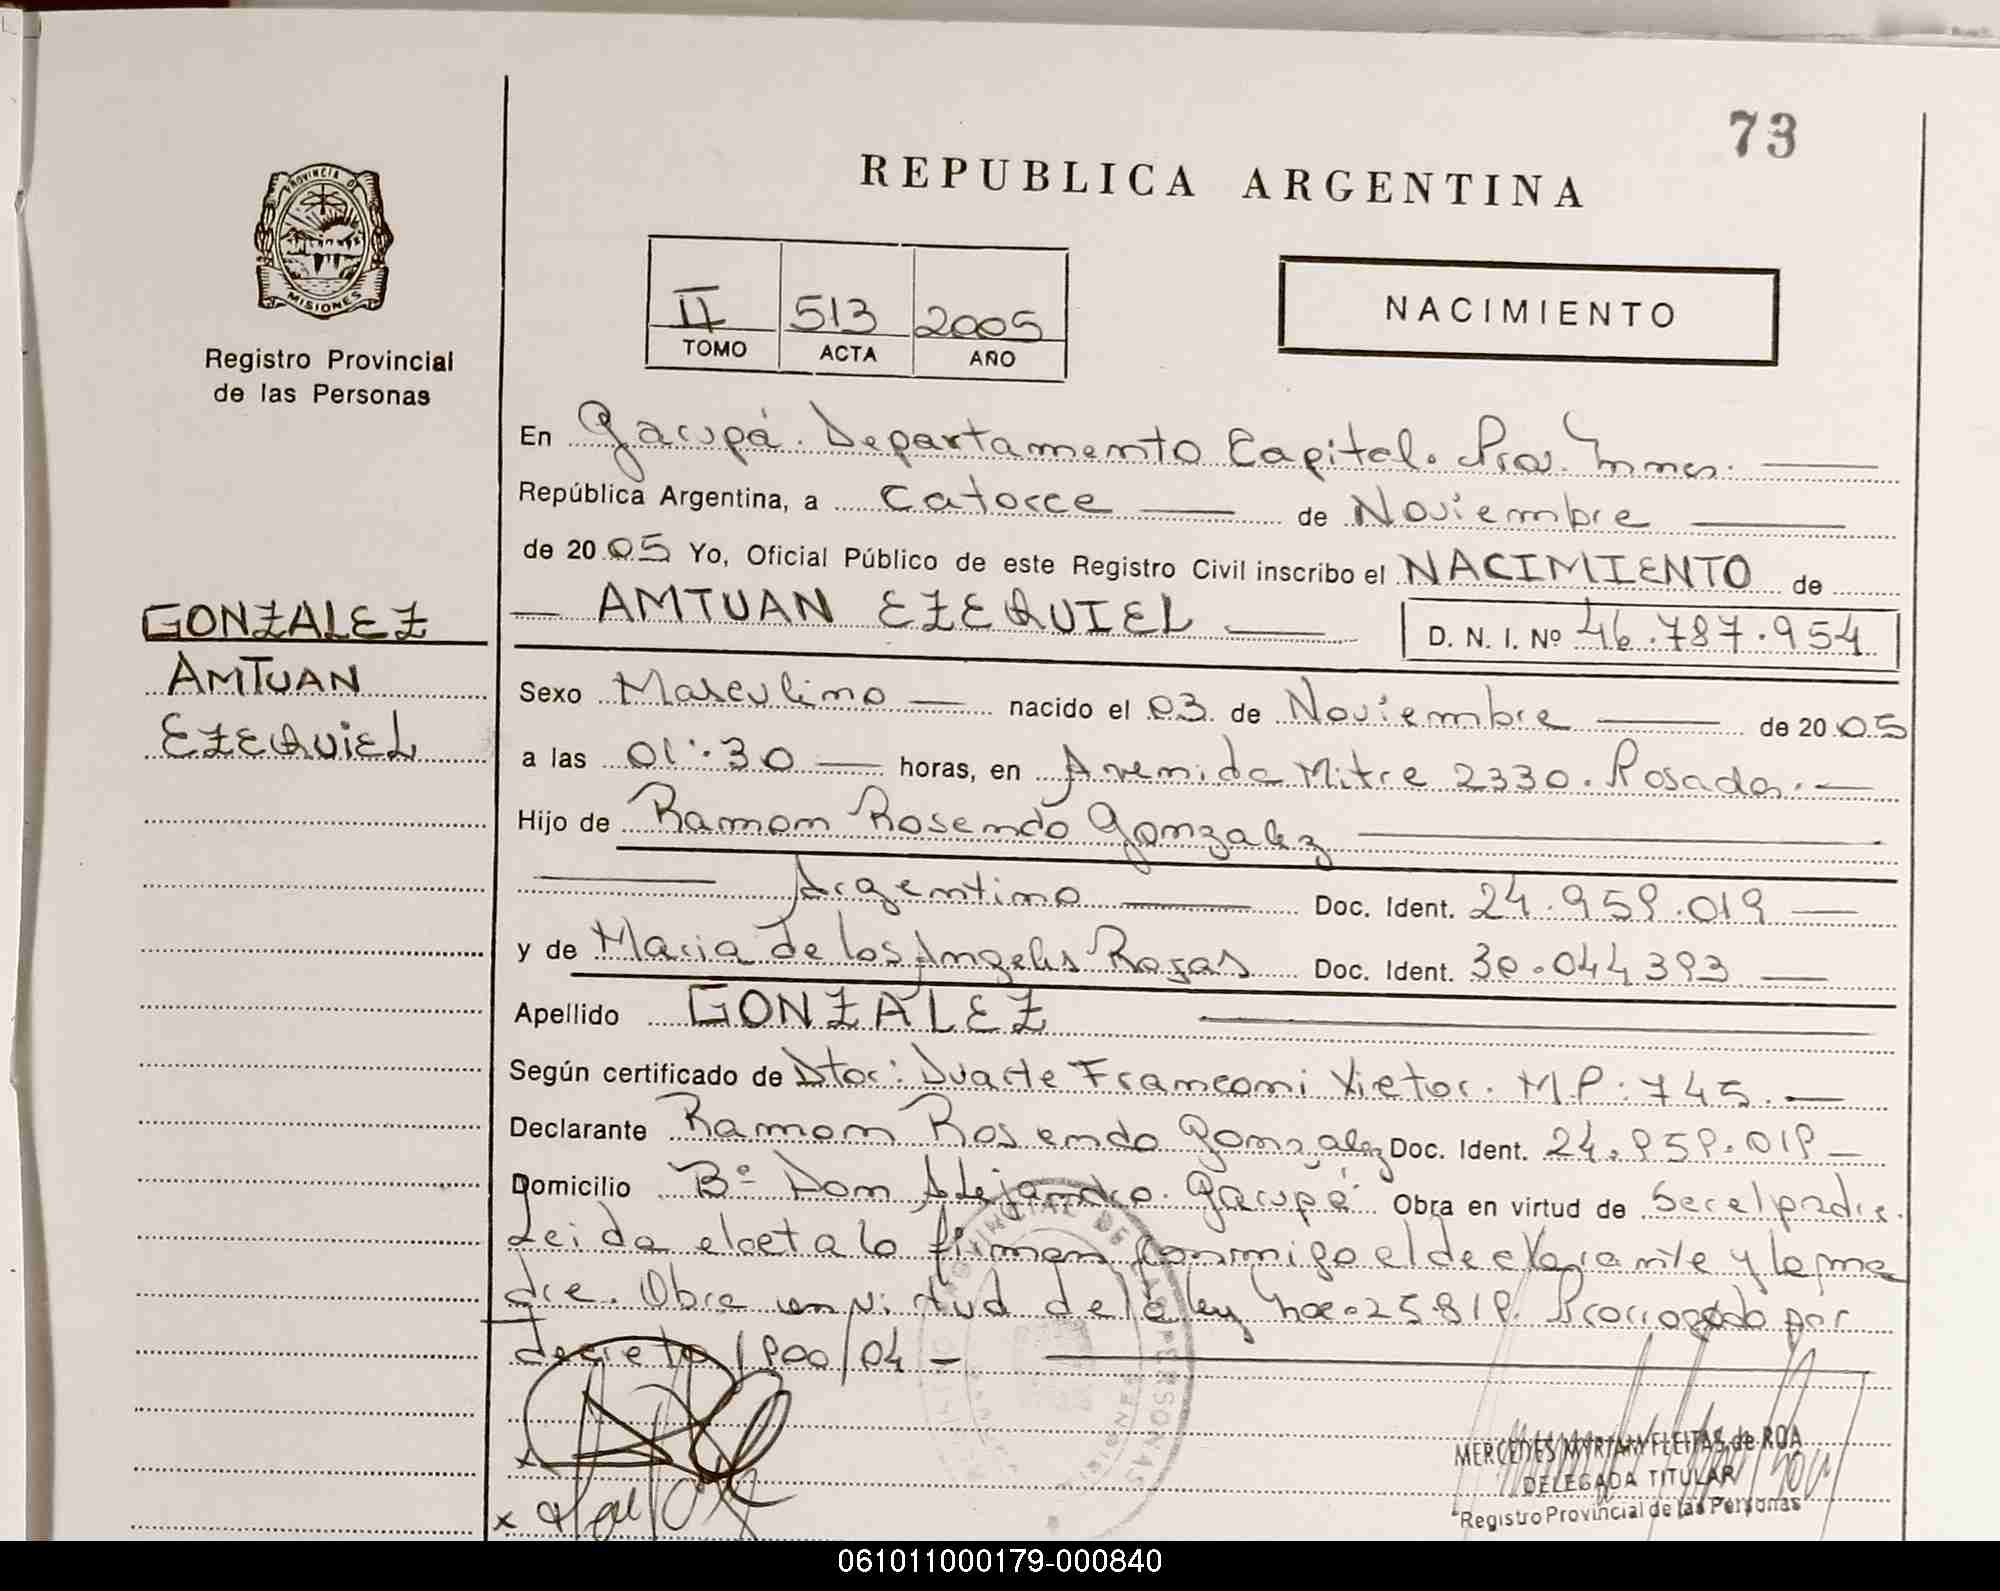 73
REPUBLICA ARGENTINA
PROVINCIA DE
MISIONES
Registro Provincial
de las Personas
II 513 2005
TOMO ACTA AÑO
NACIMIENTO
En Garupá. Departamento Capital. Prov. Mnes.
República Argentina, a Catorce de Noviembre
de 2005 Yo, Oficial Público de este Registro Civil inscribo el NACIMIENTO de
AMTUAN EZEQUIEL D. N. I. Nº 46.787.954
GONZALEZ
AMTUAN
EZEQUIEL
Sexo Masculino nacido el 03 de Noviembre de 2005
a las 01:30 horas, en Avenida Mitre 2330. Posadas.
Hijo de Ramon Rosendo Gonzalez
Argentino Doc. Ident. 24.959.019
y de Maria De los Angeles Rojas Doc. Ident. 30.044.393
Apellido GONZALEZ
Según certificado de Dtor: Duarte Franconi Victor. M.P: 745.
Declarante Ramon Rosendo Gonzalez Doc. Ident. 24.959.019
Domicilio Bº Don Alejandro. Garupá Obra en virtud de Ser el padre.
Leida el acta lo firman conmigo el declarante y la ma
dre. Obra en virtud de la ley nro. 25.819. Prorrogado por
decreto 1900/04
MERCEDES MYRIAM FLEITAS de ROA
DELEGADA TITULAR
Registro Provincial de las Personas
061011000179-000840